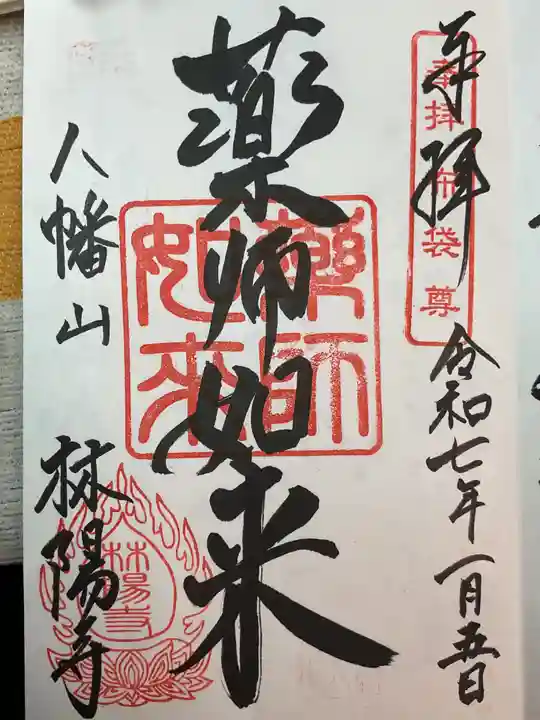 奉拝
令和七年一月五日
奉拝布袋尊
薬師如来
薬師如来
八幡山
林陽寺
林陽寺